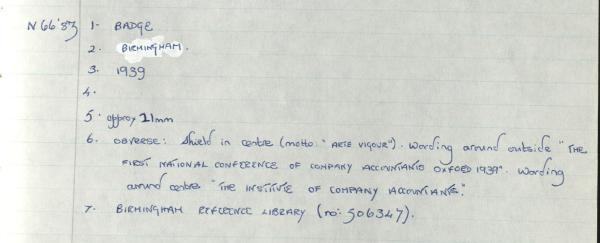 N66'83 1- BADGE
2. BIRMINGHAM.
3. 1939
4.
5. approx 21mm
6. OBVERSE: Shield in centre (motto: "ARTE VIGOUR"). Wording around outside "THE
FIRST NATIONAL CONFERENCE OF COMPANY ACCOUNTANTS OXFORD 1939". Wording
around centre "THE INSTITUTE OF COMPANY ACCOUNTANTS."
7. BIRMINGHAM REFERENCE LIBRARY (no: 506347).